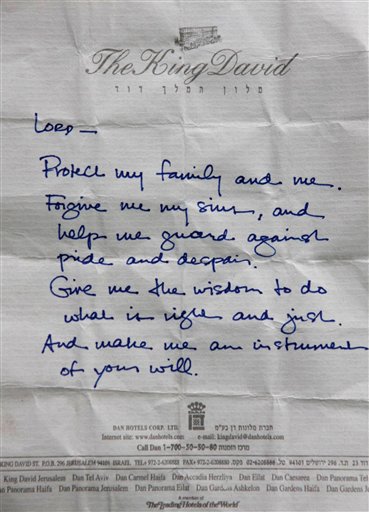 The King David
מלון המלך דוד
LORD —
Protect my family and me.
Forgive me my sins, and
help me guard against
pride and despair.
Give me the wisdom to do
what is right and just.
And make me an instrument
of your will.
DAN HOTELS CORP. LTD. חברת מלונות דן בע"מ
Internet site: www.danhotels.com e-mail: kingdavid@danhotels.com
Call Dan 1-700-50-50-80 מרכז הזמנות
KING DAVID ST. P.O.B. JERUSALEM 94101 ISRAEL TEL+ 972-2-6208888 FAX+ 972-2-6208880 02-6208888 94101 ירושלים
King David Jerusalem Dan Tel Aviv Dan Carmel Haifa Dan Accadia Herzliya Dan Eilat Dan Caesarea Dan Panorama Tel
Dan Panorama Haifa Dan Panorama Jerusalem Dan Panorama Eilat Dan Gardens Ashkelon Dan Gardens Haifa Dan Gardens
A member of
The Leading Hotels of the World